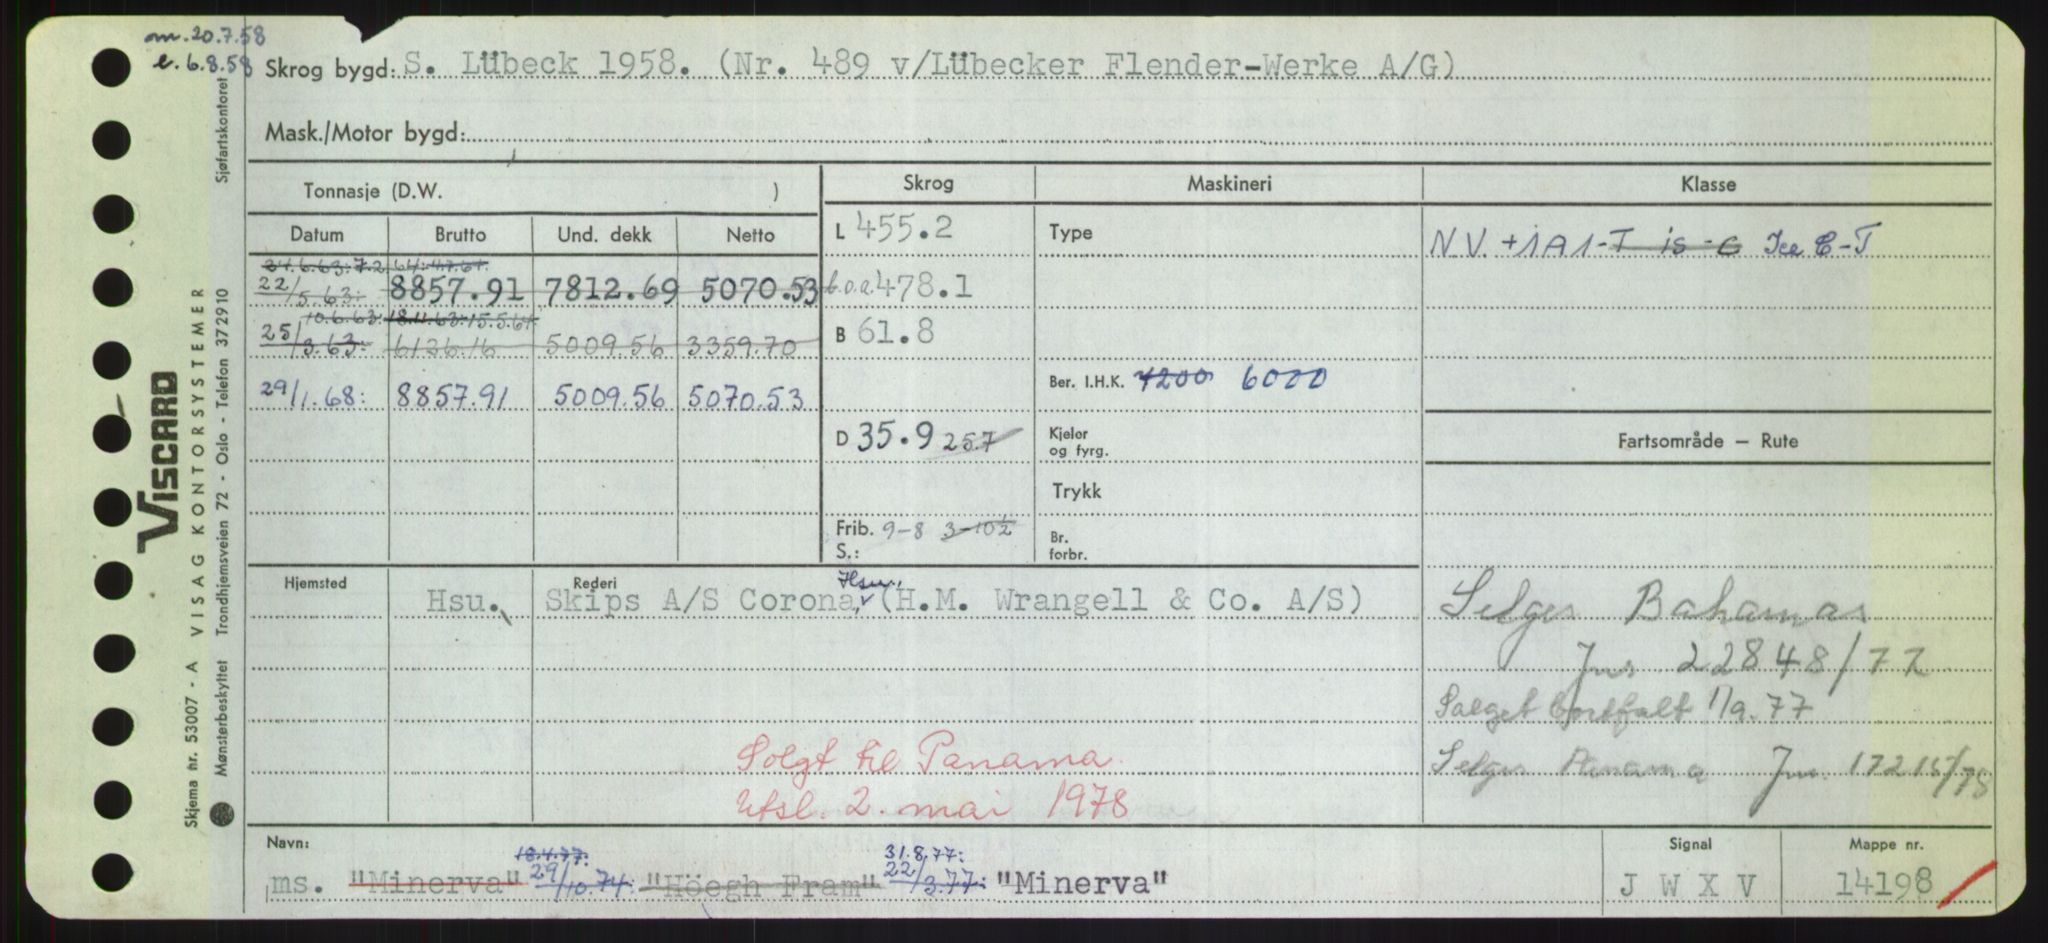 m. 20.7.58
e. 6.8.58
Skrog bygd: S. Lübeck 1958. (Nr. 489 v/Lübecker Flender-Werke A/G)
Mask./Motor bygd:
Tonnasje (D.W. )
Skrog
Maskineri
Klasse
Datum Brutto Und. dekk Netto
24.6.63: 7.2.64: 4.7.64.
22/5.63: 8857.91 7812.69 5070.53
10.6.63: 18.11.63: 15.5.64
25/3.63: 6126.16 5009.56 3359.70
29/1.68: 8857.91 5009.56 5070.53
L 455.2
b.o.a 478.1
B 61.8
D 35.9 25.7
Frib. 9-8 3-10½
S.:
Type
Ber. I.H.K. 7200 6000
Kjeler
og fyrg.
Trykk
Br.
forbr.
N.V. +1A1-T is-C Ice C-T
Fartsområde – Rute
Hjemsted
Rederi
Hsu.
Hsu. Skips A/S Corona, (H.M. Wrangell & Co. A/S)
Solgt til Panama.
Utsl. 2. mai 1978
Selges Bahamas
Jnr 22848/77
Salget bortfalt 1/9.77
Selges Panama Jnr. 17215/78
Navn:
18.4.77: 31.8.77:
ms. "Minerva" 29/10.74: "Höegh Fram" 22/3.77: "Minerva"
Signal
J W X V
Mappe nr.
14198
VISCARD
Skjema nr. 53007 - A VISAG KONTORSYSTEMER
Mønsterbeskyttet Trondhjemsveien 72 - Oslo - Telefon 372910 Sjøfartskontoret